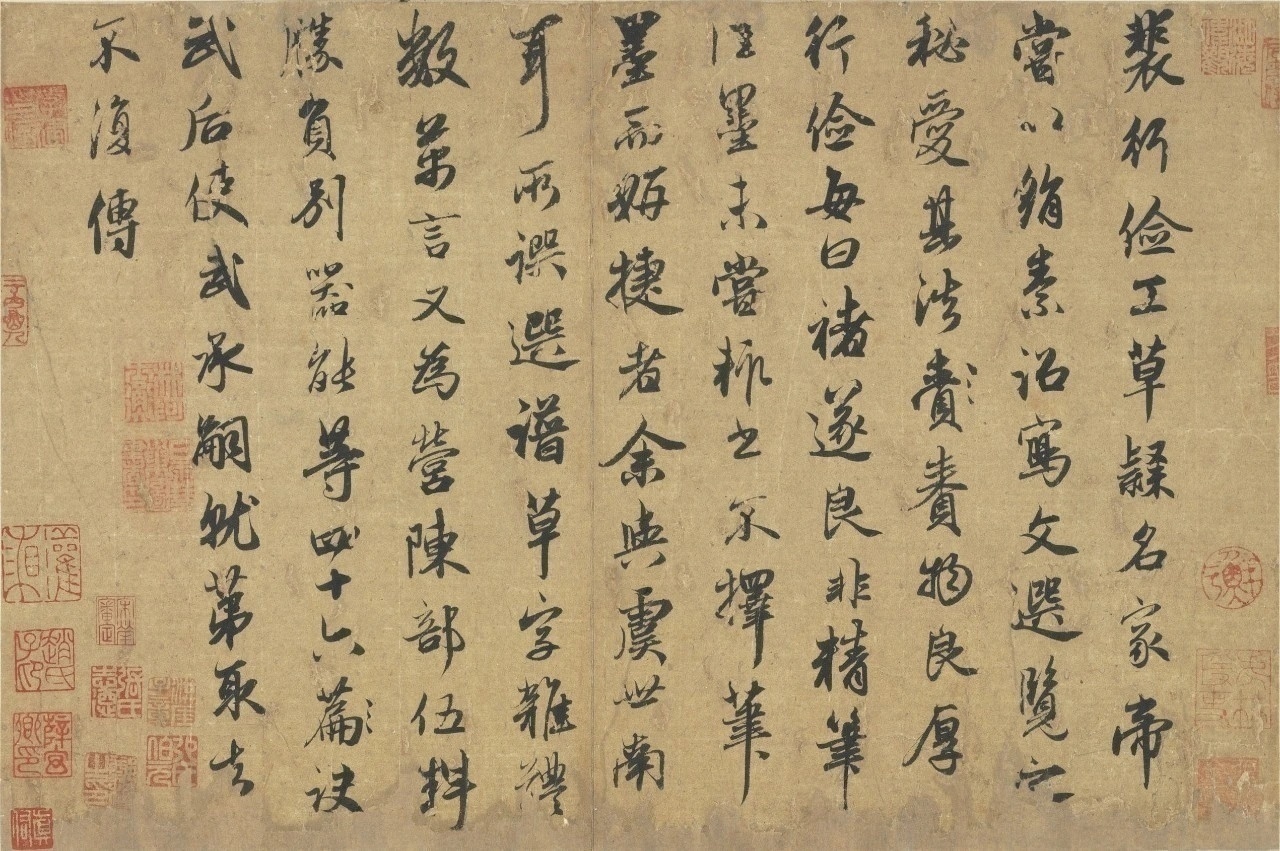 裴行儉工草隸名家帝
嘗以絹素詔寫文選覽之
秘愛其法賷賚物良厚
行儉每曰褚遂良非精筆
佳墨未嘗輒書不擇筆
墨而妍捷者余與虞世南
耳所譔選譜草字雜體
數萬言又為營陳部伍料
勝負別器能等四十六篇訣
武后使武承嗣就第取去
不復傳
趙氏子昂